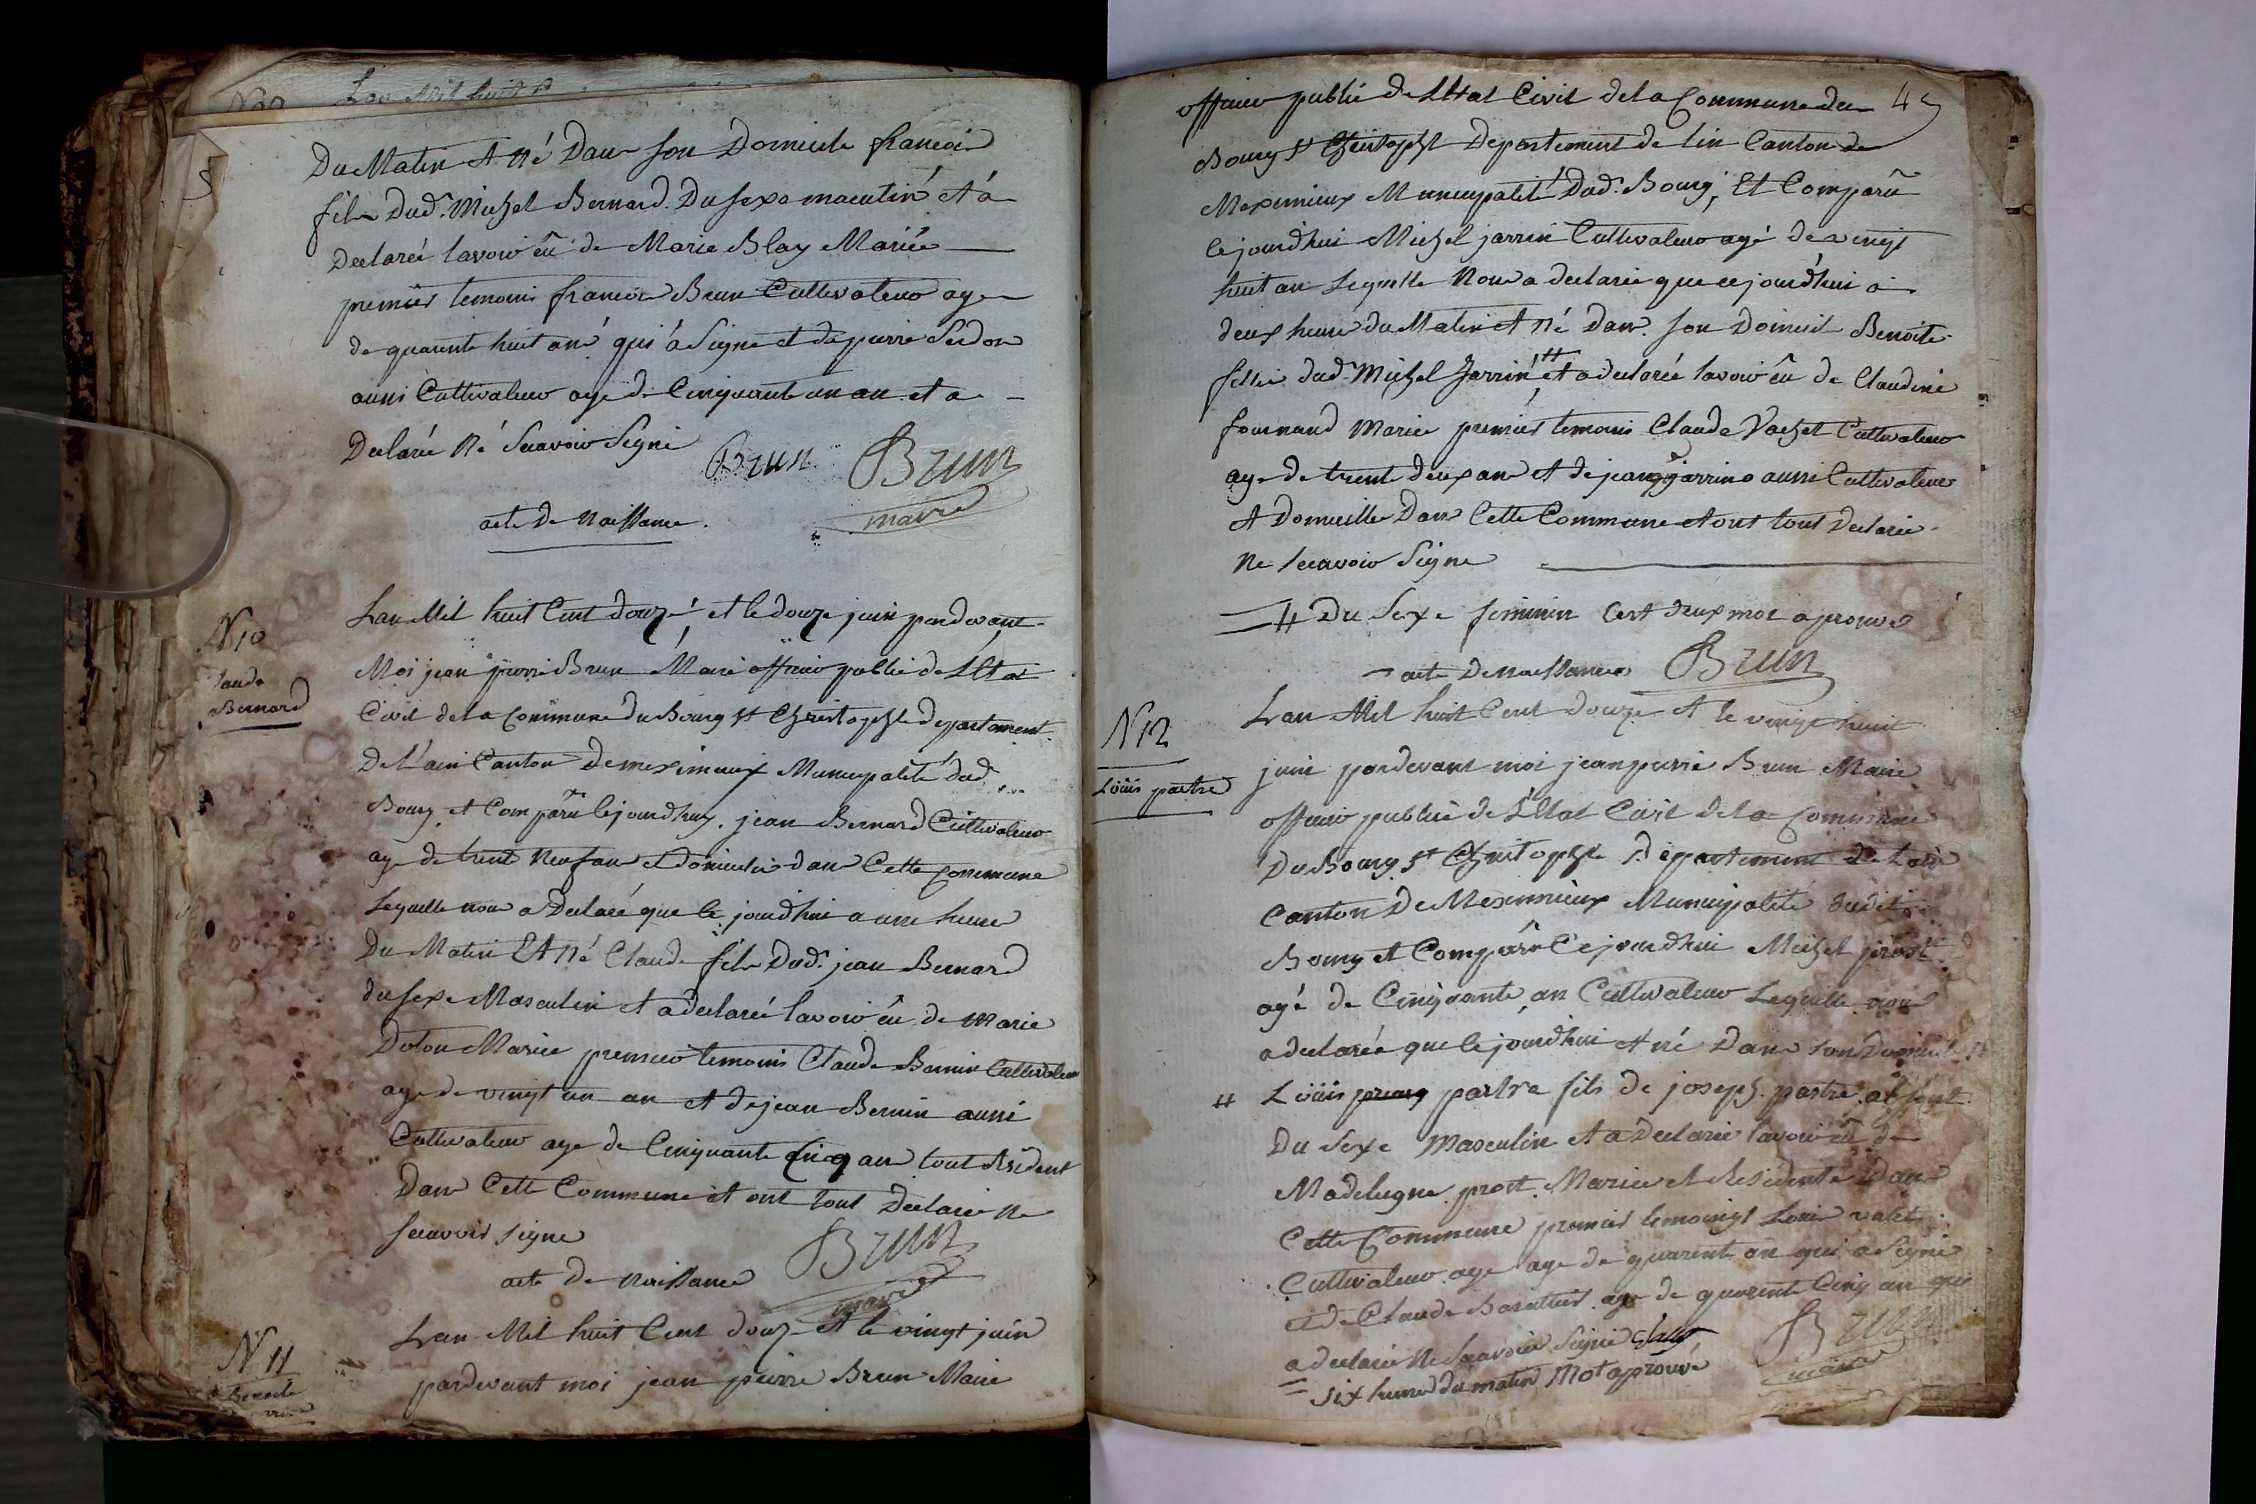 N 9 Lan Mil huit
Du Matin Et né Dans son Domicile francois
fils Dud. Michel Bernard Du sexe masculin et à
Declareé lavoir eû de Marie Blay Mariée
premier temoins francois Brun Cultivateur age
de quarente huit ans qui à Signe et de pierre Serdon
aussi Cultivateur age de Cinquante un an et a
Declarée Né Scavoir Signé
Brun Brun
maire
acte De Naissance
N 10
Claude
Bernard
Lan Mil huit Cent douze et le douze juin pardevant
Moi jean pierre Brun Maire officier public de LEtat
Civil de la Commune Du Bourg St Christophe departement
De l'ain Canton De meximieux Municipalité dud.
Bourg et Comparû Cejourdhuy jean Bernard Cultivateur
age de trente neuf an et domicilié dans Cette Commune
Lequelle nous a Declaré que Ce jourdhui a une heure
Du Matin Et Né Claude fils Dud. jean Bernard
du sexe Masculin et a declareé lavoir eû de Marie
Doton Mariée premier temoins Claude Bernin Cultivateur
age de vingt un an et de jean Bernin aussi
Cultivateur age de Cinquante Cinq an tout Résident
Dans Cette Commune et ont tout Declarée Ne
scavoir signe
Brun
maire
acte de naissance
N 11
Benoite
Lan Mil huit Cent douze et le vingt juin
pardevant moi jean pierre Brun Maire
45
officier public De LEtat Civil de la Commune du
Bourg St Christophe Departement de lin Canton de
Meximieux Municipalité Dud. Bourg, Et Comparû
Cejourdhui Michel jarrin Cultivateur agé de vingt
huit an Lequelle Nous a declarée que cejourdhui à
deux heure du Matin et né Dans son Domicil Benoite
fille dud. Michel Jarrin # et a declarée lavoir eû de Claudine
fournand Mariée premier temoins Claude Vachet Cultivateur
age de trente deux an et de jean jarrin aussi Cultivateur
et Domicillié Dans Cette Commune et ont tout Declarée
Ne Scavoir Signe
# Du Sexe feminin Cest deux mot aprouvé
Brun
acte De naissance
N 12
Loüis partre
Lan Mil huit Cent douze et le vingt huit
juin pardevant moi jean pierre Brun Maire
officier publié de L'Etat Civil de la Commune
Du Bourg St Christophe Departement de Lain
Canton De Meximieux Municipalité dudit
Bourg et Comparû Cejourdhui Michel prost
agé de Cinquante an Cultivateur Lequelle nous
a declarée que Cejourdhui et né Dans son Domicile
# Loüis partre fils de joseph partre absent
Du Sexe Masculin et a Declarée lavoir eû de
Madelegne prost Mariée et Residente Dans
Cette Commune premier temoings Louis valet
Cultivateur age age de quarente an qui a Signé
et de Claude age de quarente Cinq an qui
a declarée Ne Scavoir Signé
Brun
maire
= six heure du matin Mot aprouvé